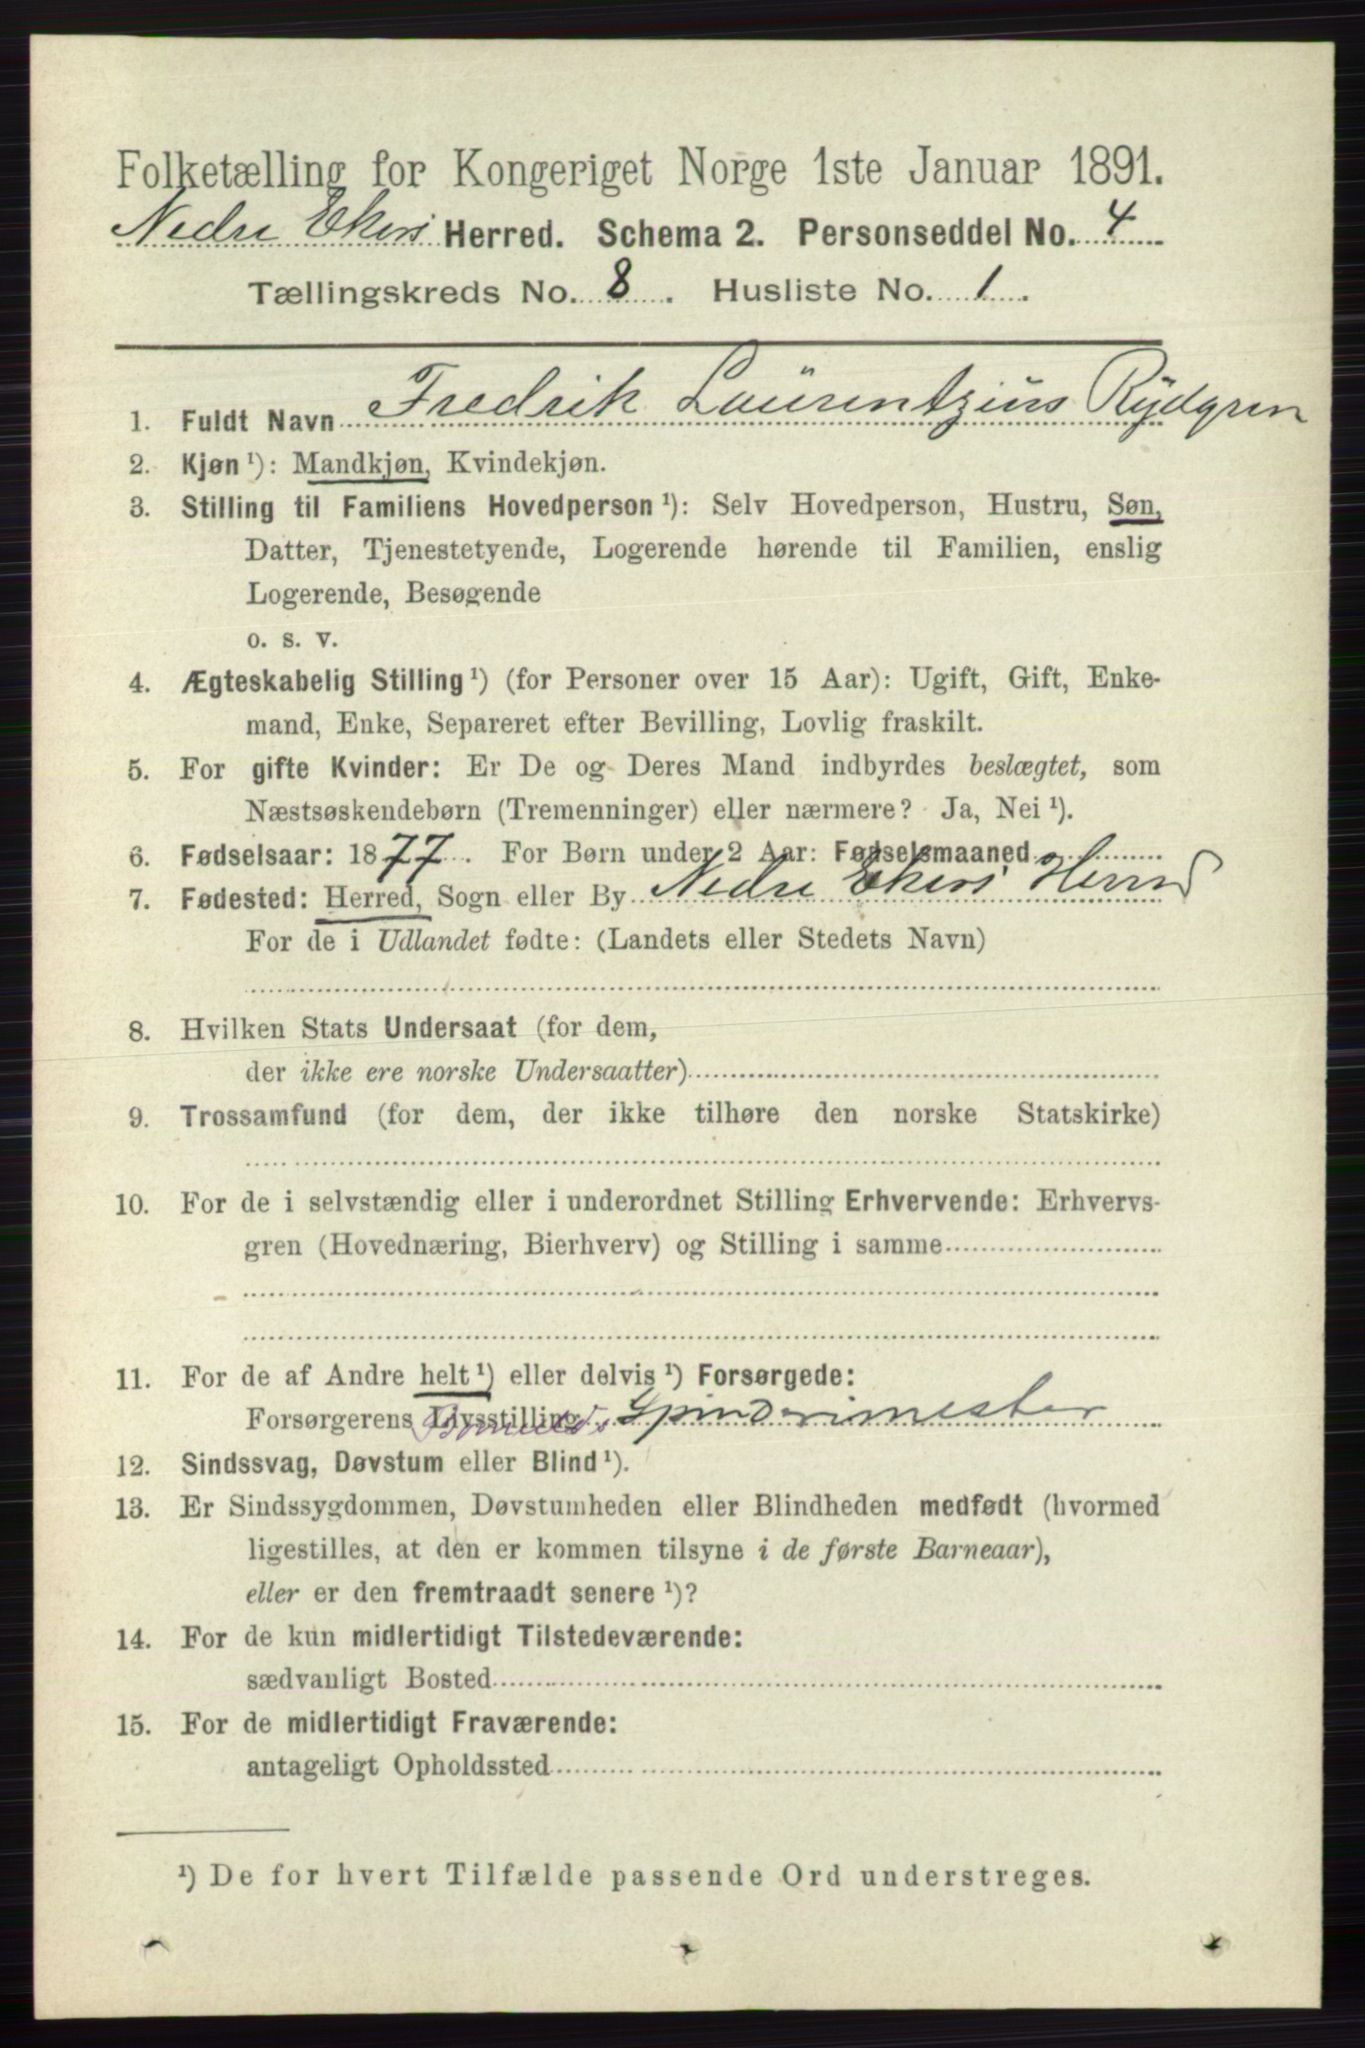 Folketælling for Kongeriget Norge 1ste Januar 1891.
Nedre Ekers Herred. Schema 2. Personseddel No. 4
Tællingskreds No. 8. Husliste No. 1.
1. Fuldt Navn Fredrik Laürentzius Rydgren
2. Kjøn ¹): Mandkjøn, Kvindekjøn.
3. Stilling til Familiens Hovedperson ¹): Selv Hovedperson, Hustru, Søn,
Datter, Tjenestetyende, Logerende hørende til Familien, enslig
Logerende, Besøgende
o. s. v.
4. Ægteskabelig Stilling ¹) (for Personer over 15 Aar): Ugift, Gift, Enke-
mand, Enke, Separeret efter Bevilling, Lovlig fraskilt.
5. For gifte Kvinder: Er De og Deres Mand indbyrdes beslægtet, som
Næstsøskendebørn (Tremenninger) eller nærmere? Ja, Nei ¹).
6. Fødselsaar: 1877. For Børn under 2 Aar: Fødselsmaaned
7. Fødested: Herred, Sogn eller By Nedre Ekers Herred
For de i Udlandet fødte: (Landets eller Stedets Navn)
8. Hvilken Stats Undersaat (for dem,
der ikke ere norske Undersaatter)
9. Trossamfund (for dem, der ikke tilhøre den norske Statskirke)
10. For de i selvstændig eller i underordnet Stilling Erhvervende: Erhvervs-
gren (Hovednæring, Bierhverv) og Stilling i samme
11. For de af Andre helt ¹) eller delvis ¹) Forsørgede:
Forsørgerens Livsstilling Bomulds Spinderimester
12. Sindssvag, Døvstum eller Blind ¹).
13. Er Sindssygdommen, Døvstumheden eller Blindheden medfødt (hvormed
ligestilles, at den er kommen tilsyne i de første Barneaar),
eller er den fremtraadt senere ¹)?
14. For de kun midlertidigt Tilstedeværende:
sædvanligt Bosted
15. For de midlertidigt Fraværende:
antageligt Opholdssted
¹) De for hvert Tilfælde passende Ord understreges.